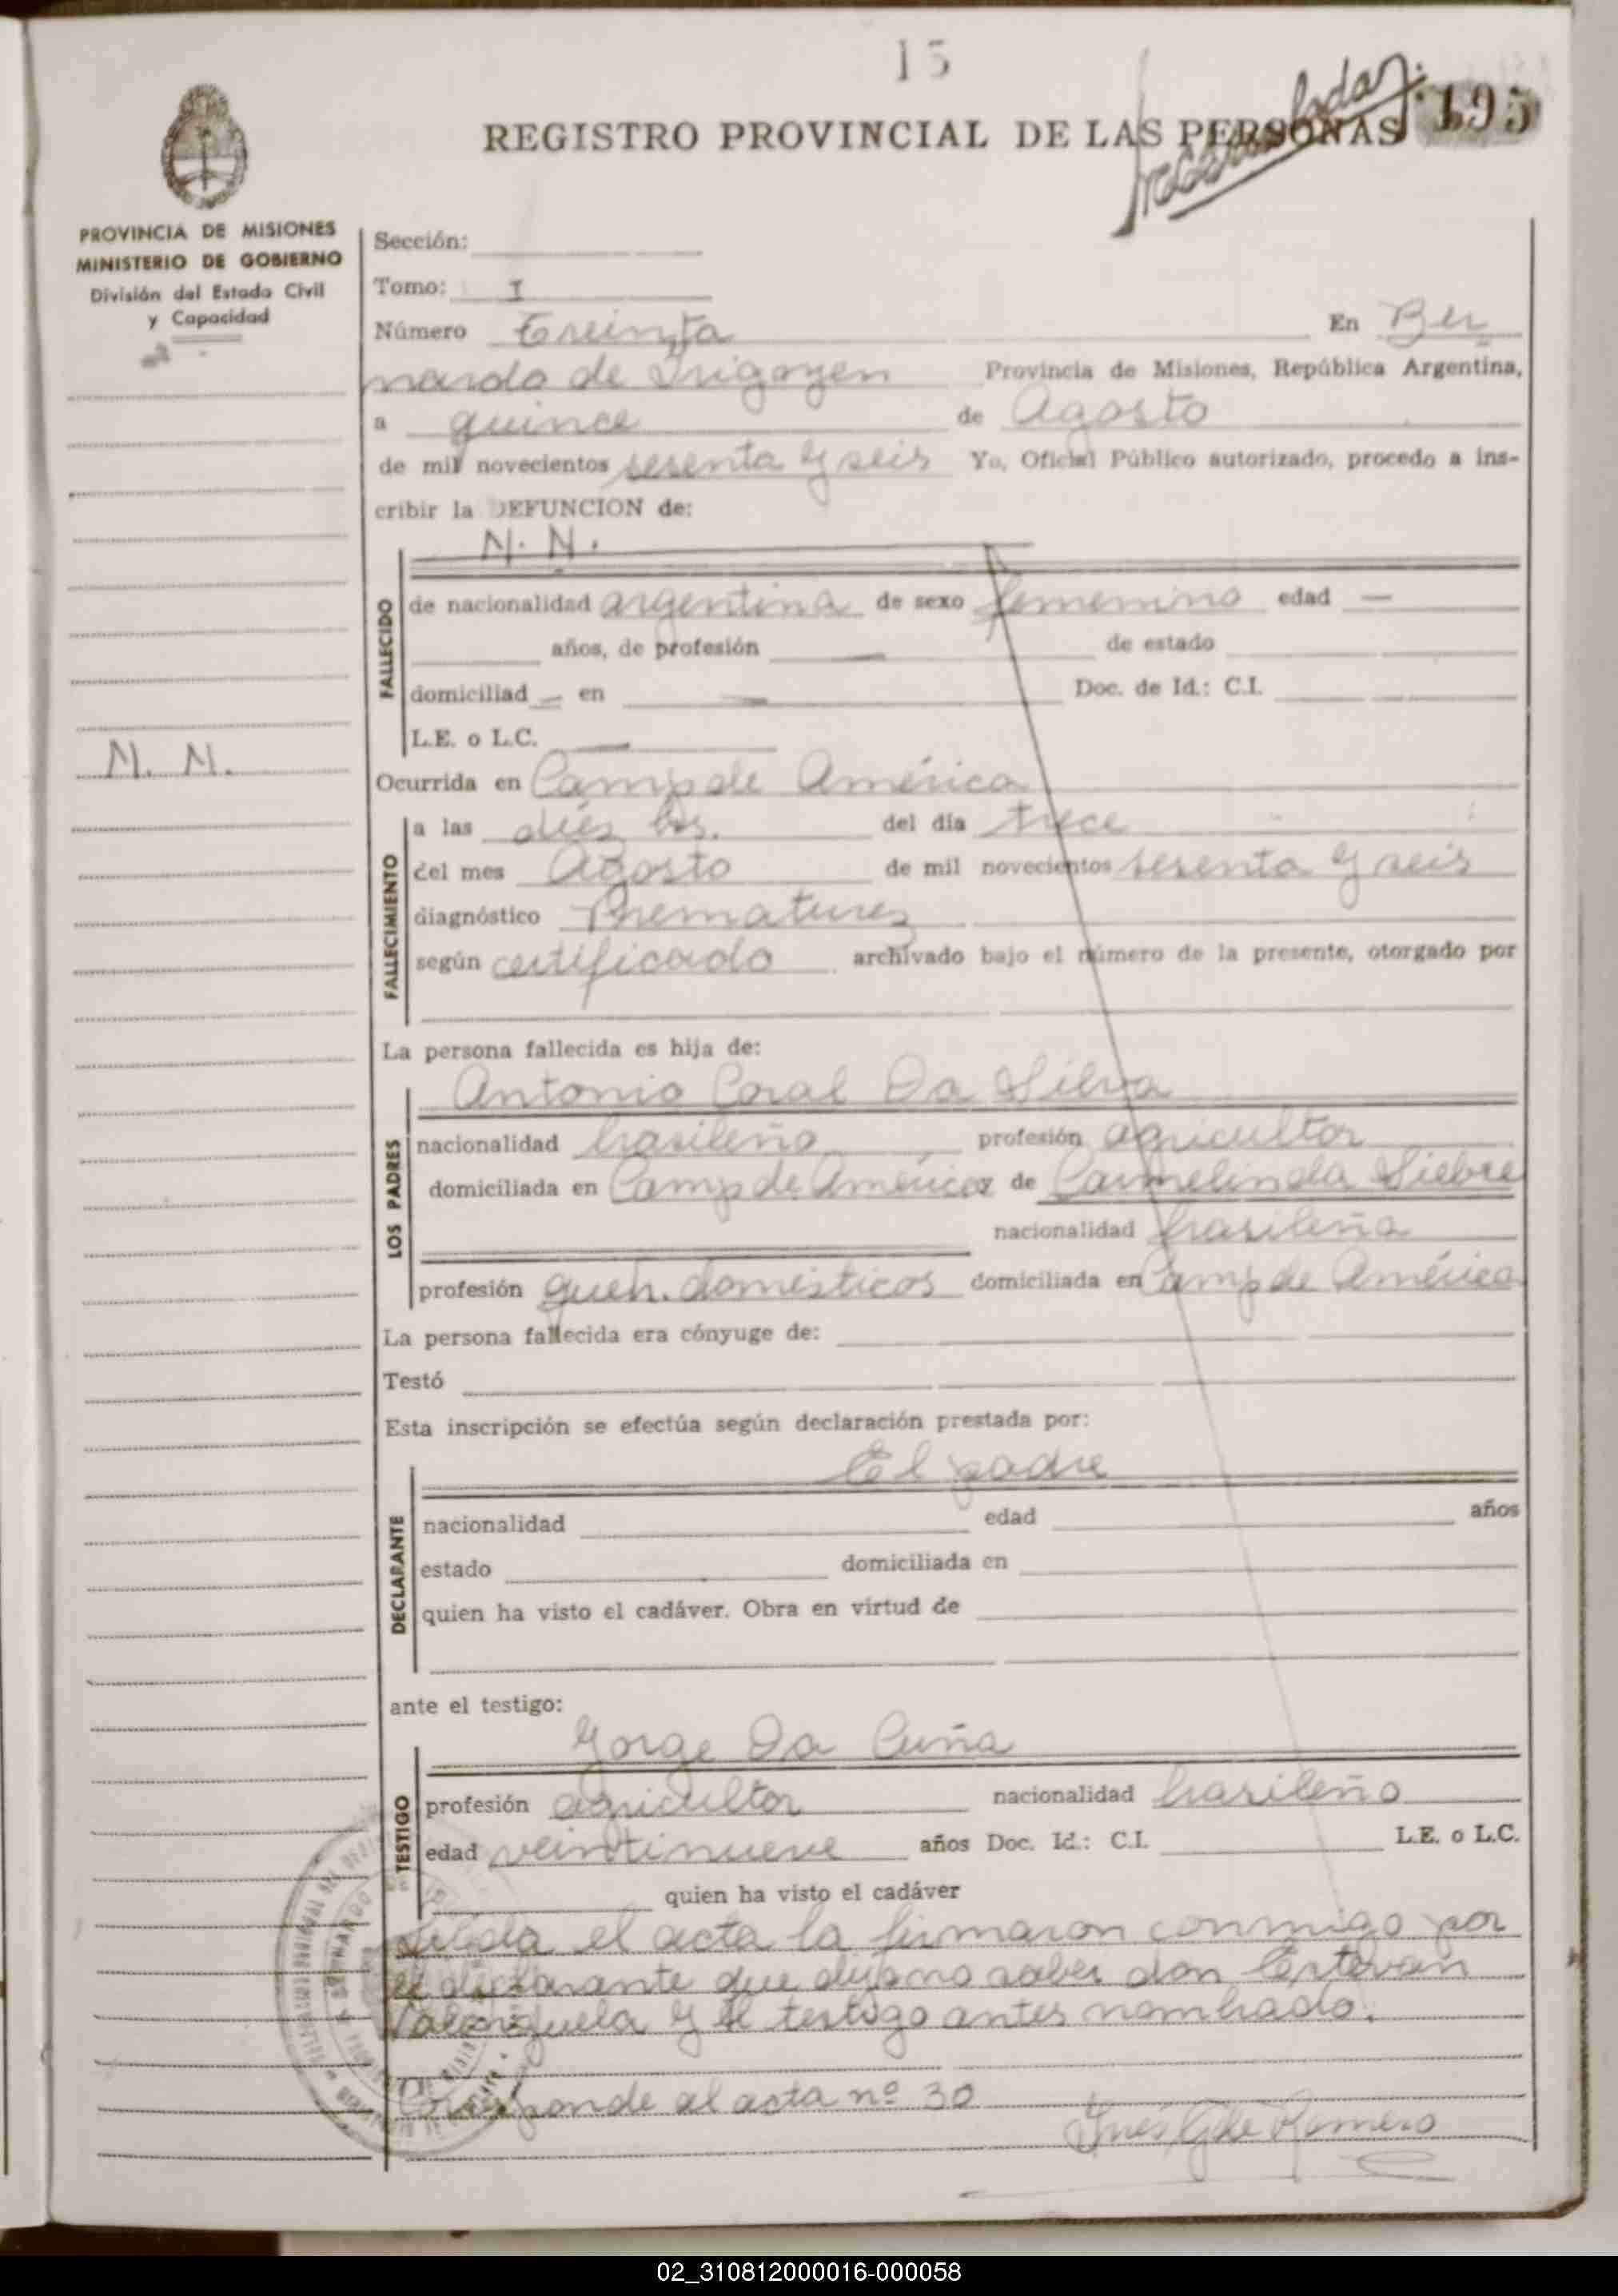 15
REGISTRO PROVINCIAL DE LAS PERSONAS
195
PROVINCIA DE MISIONES
MINISTERIO DE GOBIERNO
División del Estado Civil
y Capacidad
Sección:
Tomo: I
Número Treinta En Ber
nardo de Irigoyen Provincia de Misiones, República Argentina,
a quince de Agosto
de mil novecientos sesenta y seis Yo, Oficial Público autorizado, procedo a ins-
cribir la DEFUNCION de:
N. N.
FALLECIDO
de nacionalidad argentina de sexo femenino edad —
años, de profesión — de estado
domiciliad — en — Doc. de Id.: C.I.
L.E. o L.C. —
N. N.
Ocurrida en Camp de América
FALLECIMIENTO
a las diés hs. del día trece
del mes Agosto de mil novecientos sesenta y seis
diagnóstico Prematures
según certificado archivado bajo el número de la presente, otorgado por
La persona fallecida es hija de:
LOS PADRES
Antonio Coral Da Silva
nacionalidad brasileño profesión agricultor
domiciliada en Camp de América de Carmelinda Siebre
nacionalidad brasileña
profesión queh. domésticos domiciliada en Camp de América
La persona fallecida era cónyuge de:
Testó
Esta inscripción se efectúa según declaración prestada por:
El padre
DECLARANTE
nacionalidad edad años
estado domiciliada en
quien ha visto el cadáver. Obra en virtud de
ante el testigo:
Jorge Da Cuña
TESTIGO
profesión agricultor nacionalidad brasileño
edad veintinueve años Doc. Id.: C.I. L.E. o L.C.
quien ha visto el cadáver
Leída el acta la firmaron conmigo por
el declarante que dijo no saber don Estevan
Valenzuela y el testigo antes nombrado.
Corresponde al acta nº 30
Inés G de Romero
02_310812000016-000058